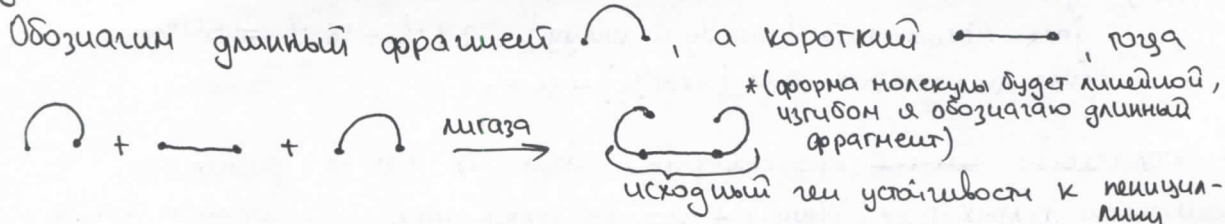 Обозначим длинный фрагмент , а короткий , тогда
*(форма молекулы будет линейной,
изгибом я обозначаю длинный
фрагмент)
+ + лигаза
исходный ген устойчивости к пеницил-
лину